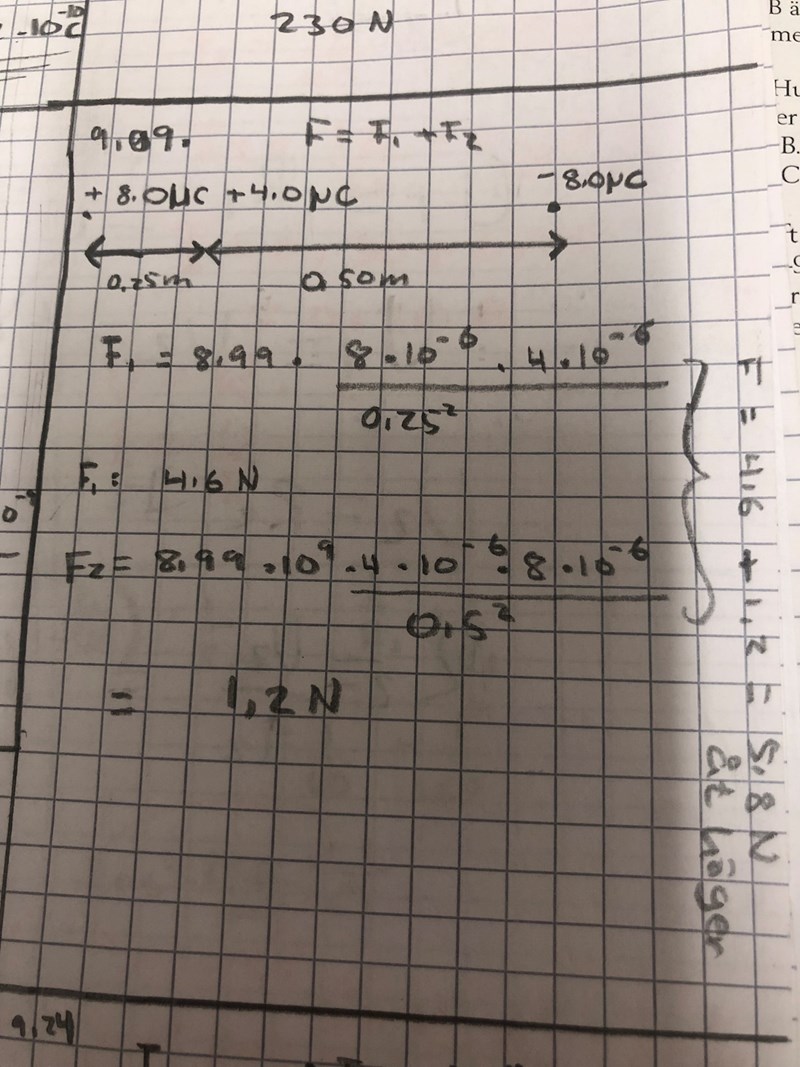 .10⁻¹⁰C
230 N
9.09.
F = F₁ + F₂
+ 8.0µC +4.0µC
-8.0µC
0,25m
0,50m
F₁ = 8,99 · 8·10⁻⁶ · 4·10⁻⁶
0,25²
F₁: 4,6 N
F₂ = 8,99 ·10⁹ · 4 ·10⁻⁶ · 8 ·10⁻⁶
0,5²
= 1,2 N
F = 4,6 + 1,2 = 5,8 N
åt höger
9,24
B ä
me
Hu
er
B.
C